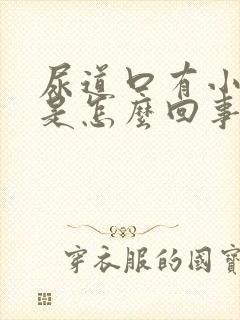 尿道口有小
是怎麼回事
穿衣服的國寶